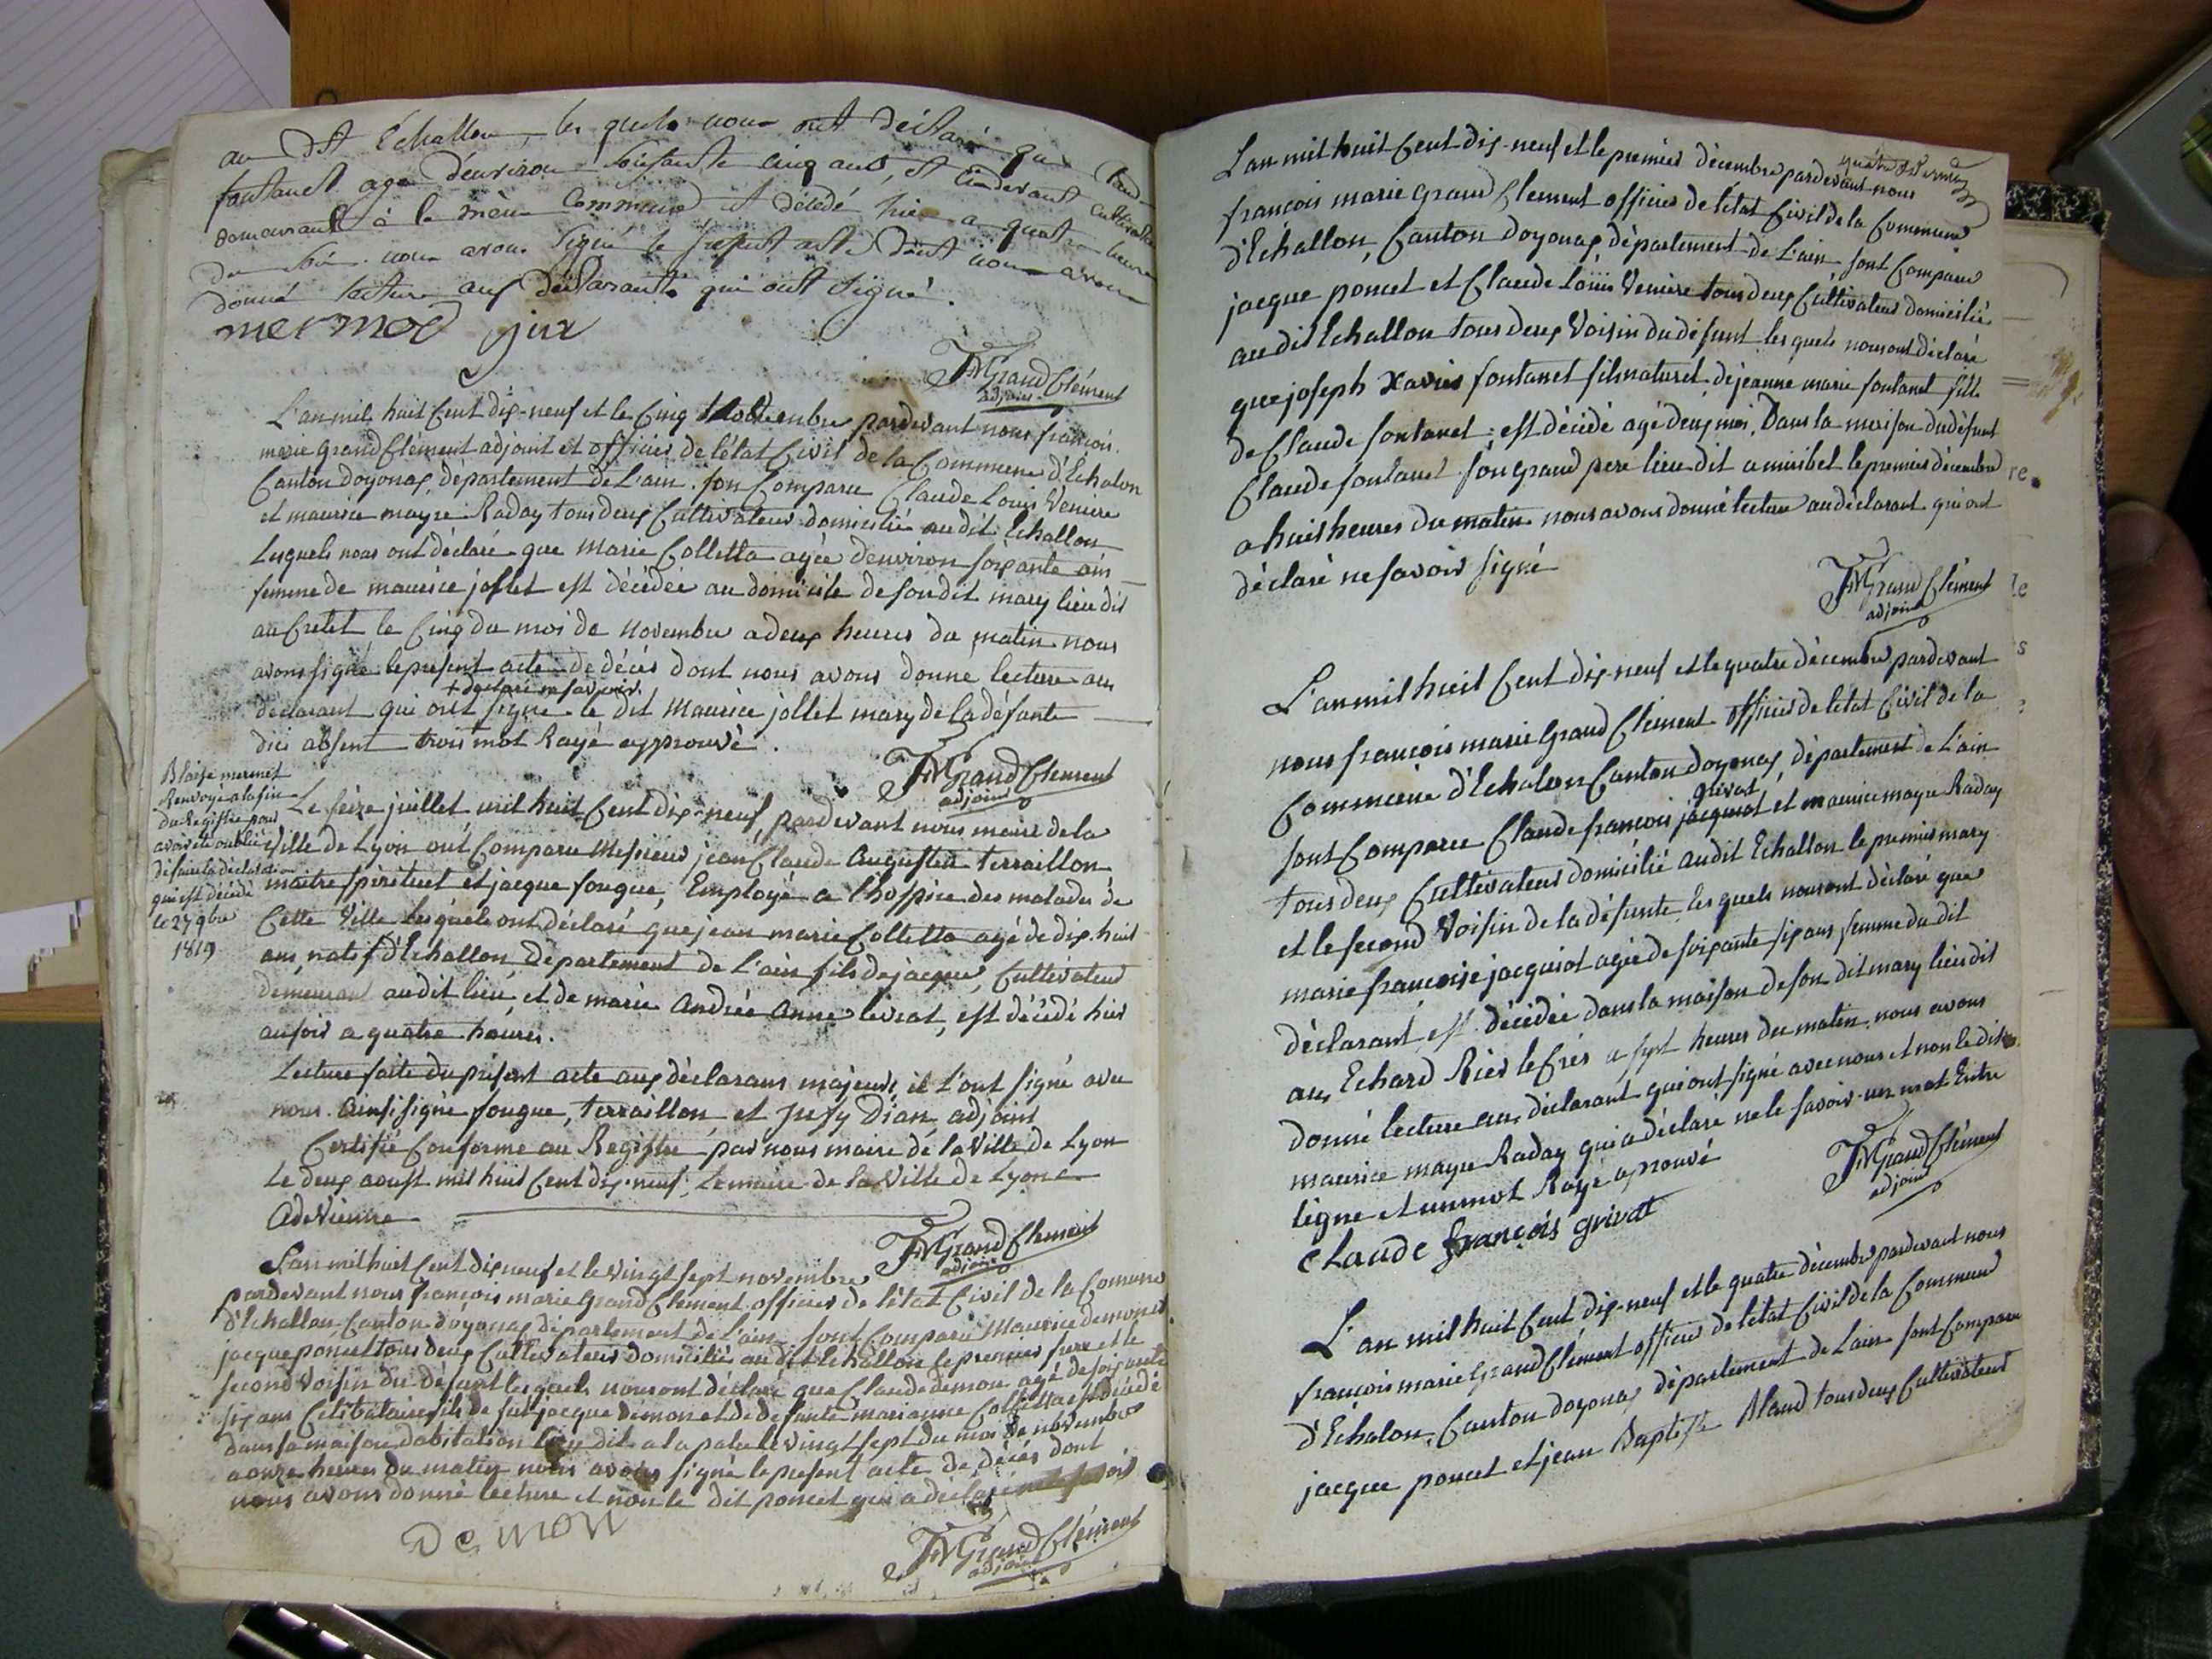 au dit Echallon, les quels nous ont déclaré que Claude
fontanet agé d'environ soisante cinq ans, et cindevant cultivateur
demeurant à la même Commune est décédé hier a quatre heures
du soir. nous avons signé le present acte Dont nous avons
donné lecture aux déclarants qui ont signé.
mermod jux
FMGrand Clément
adjoint
L'an mil huit Cent dix-neuf et le Cinq Novembre pardevant nous francois
marie Grand Clément adjoint et officier de l'état Civil de la Commune d'Échalon
Canton doyonax, département de L'ain. son Comparu Claude Louis Veniere
et maurice mayre Raday tous deux Cultivateur domicilié au dit Echallon
Lesquels nous ont déclaré que Marie Colletta agée d'environ soixante ans
femme de maurice jollet est décédée au domicile de son dit mary lieu dit
au Cretet le Cinq du moi de Novembre a deux heures du matin nous
avons signé le present acte de décés dont nous avons donné lecture au
+ declaré ne savoir
declarant qui ont signé le dit Maurice jollet mary de la défunte
dit absent trois mot Rayé approuvé.
FMGrand Clement
adjoint
Blaise mermet
Renvoyé a la fin
du Registre pour
avoir eté oublié
de faire la déclaration
qui est décédé
le 27 9bre
1819
Le seize juillet mil huit Cent dix-neuf, pardevant nous maire de la
Ville de Lyon ont Comparu Messieurs jean Claude Augustin terraillon
maitre spirituel et jacque fougue, Employé a l'hospice des malades de
Cette Ville lesquels ont déclaré que jean marie Colletta agé de dix-huit
ans, natif d'Echallon Département de L'ain fils de jacque, Cultivateur
demeurant audit lieu, et de marie Andrée Anne levrat, est décédé hier
au soir a quatre heures.
Lecture faite du présent acte aux déclarans majeurs, il L'ont signé avec
nous. Ainsi signé fougue, terraillon, et Dian adjoint
Certifié Conforme au Registre par nous maire de la Ville de Lyon
Le deux aoust mil huit Cent dix-neuf, Le maire de la Ville de Lyon
FMGrand Clement
adjoint
L'an mil huit Cent dix neuf et le vingt sept novembre
pardevant nous francois marie Grand Clement officier de l'état Civil de la Comune
d'Echallon, Canton doyonax département de L'ain sont Comparu Maurice demon et
jacque poncet tous deux Cultivateurs domiciliés au dit Echallon le premier frere et le
second Voisin du défunt lesquels nous ont déclaré que Claude demon agé de soixante
six ans Célibataire fils de fut jacque demon et de defunte marianne Colletta est décédé
dans sa maison d'abitation lieu dit a la pala le vingt sept du moi de novembre
a onze heures du matin nous avons signé le present acte de décés dont
nous avons donné lecture et non le dit poncet qui a declaré ne savoir
De mon
FMGrand Clément
adjoint
L'an mil huit Cent dix-neuf et le premier décembre pardevant nous
francois marie Grand Clement officier de l'état Civil de la Commune
d'Echallon, Canton doyonax, département de L'ain sont Comparu
jacque poncet et Claude Louis Veniere tous deux Cultivateur domicilié
au dit Echallon tous deux Voisin du défunt les quels nous ont déclaré
que joseph Xavier fontanet fils naturel de jeanne marie fontanet fille
de Claude fontanet est décédé agé deux moi, Dans la maison du défunt
Claude fontanet son grand pere lieu dit a miribel le premier décembre
a huit heures du matin nous avons donné lecture au déclarant qui ont
déclaré ne savoir signé
FMGrand Clément
adjoint
L'an mil huit Cent dix-neuf et le quatre décembre pardevant
nous francois marie Grand Clément officier de l'état Civil de la
Commune d'Echalon Canton doyonax, département de L'ain
grivat
sont Comparu Claude francois jacquiot et maurice mayre Raday
tous deux Cultivateur domicilié au dit Echallon le premier mary
et le second Voisin de la défunte, les quels nous ont déclaré que
marie francoise jacquiot agée de soixante six ans femme du dit
déclarant est décédée dans la maison de son dit mary lieu dit
au Echard Rier le Crés a sept heures du matin. nous avons
donné lecture au déclarant qui ont signé avec nous et non le dit
maurice mayre Raday qui a déclaré ne le savoir un mot Entre
ligne et un mot Rayé aprouvé
FMGrand Clément
adjoint
Claude françois grivat
L'an mil huit Cent dix-neuf et le quatre décembre pardevant nous
francois marie Grand Clément officier de l'état Civil de la Commune
d'Echalon, Canton doyonax, département de L'ain sont Comparu
jacque poncet et jean Baptiste Blanc tous deux Cultivateur